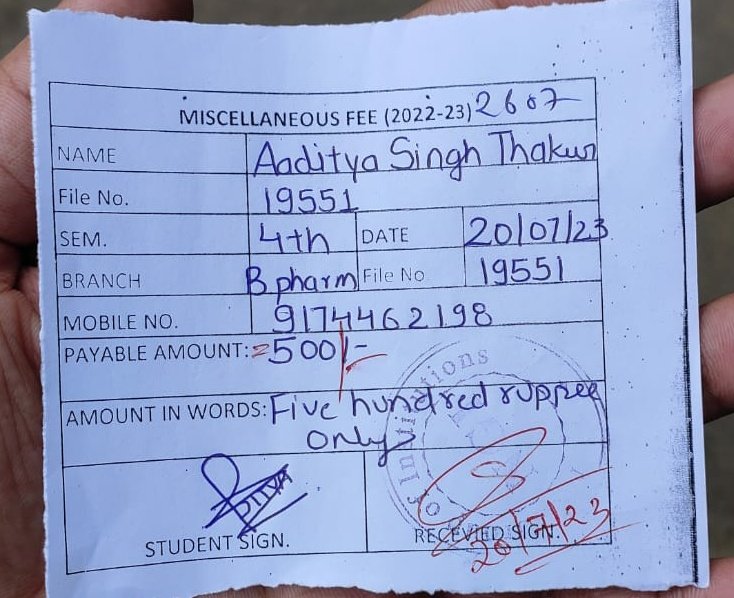 MISCELLANEOUS FEE (2022-23) 2607
NAME Aaditya Singh Thakur
File No. 19551
SEM. 4th DATE 20/07/23
BRANCH B pharm File No 19551
MOBILE NO. 9174462198
PAYABLE AMOUNT: =500/-
AMOUNT IN WORDS: Five hundred ruppee
only
STUDENT SIGN. RECEVIED SIGN.
20/7/23